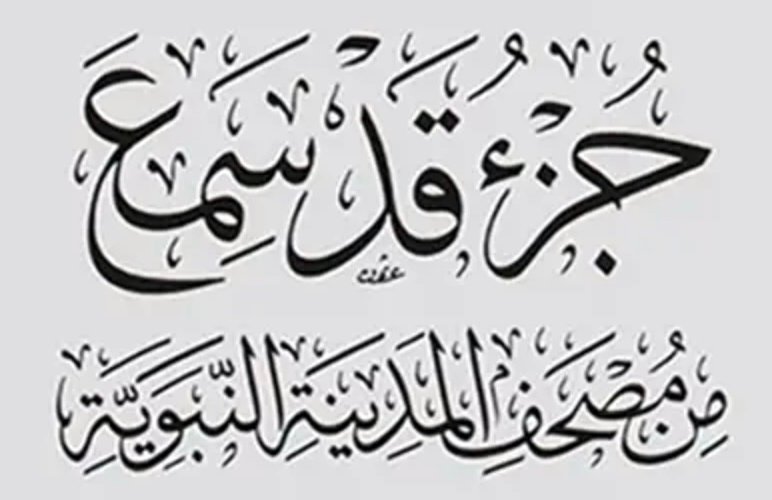 جُزْءُ قَدْ سَمِعَ
مِنْ مُصْحَفِ المَدِينَةِ النَّبَوِيَّةِ